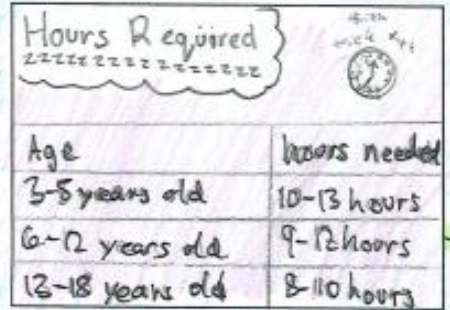 Hours Required
zzzzzzzzzzzzzzzzz
Age hours needed
3-5 years old 10-13 hours
6-12 years old 9-12 hours
13-18 years old 8-10 hours